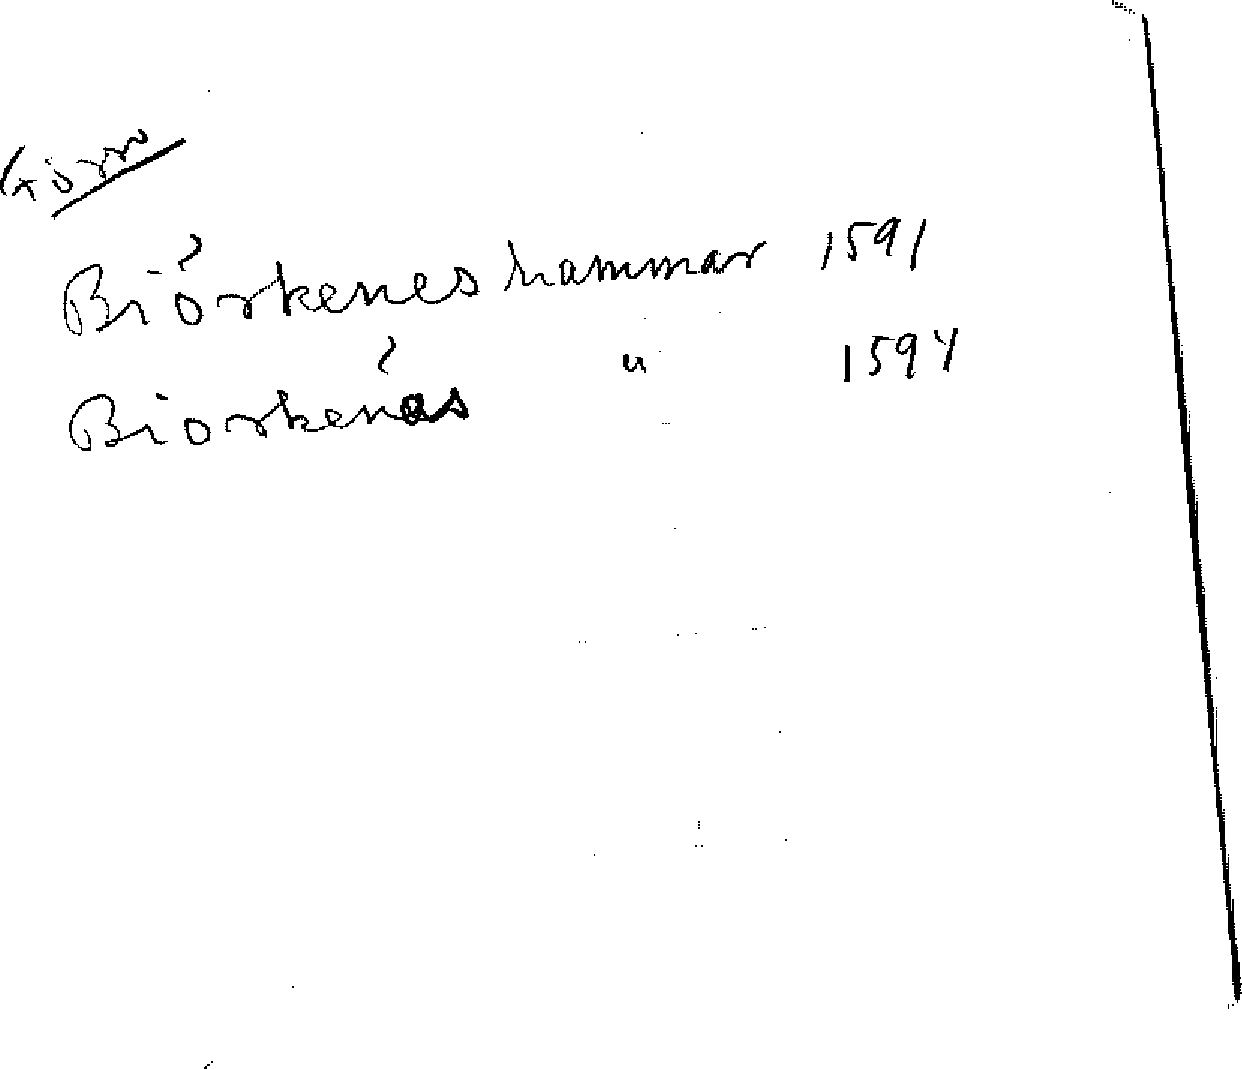 Biörkenes hammar 1591
Biorkenäs " 1594